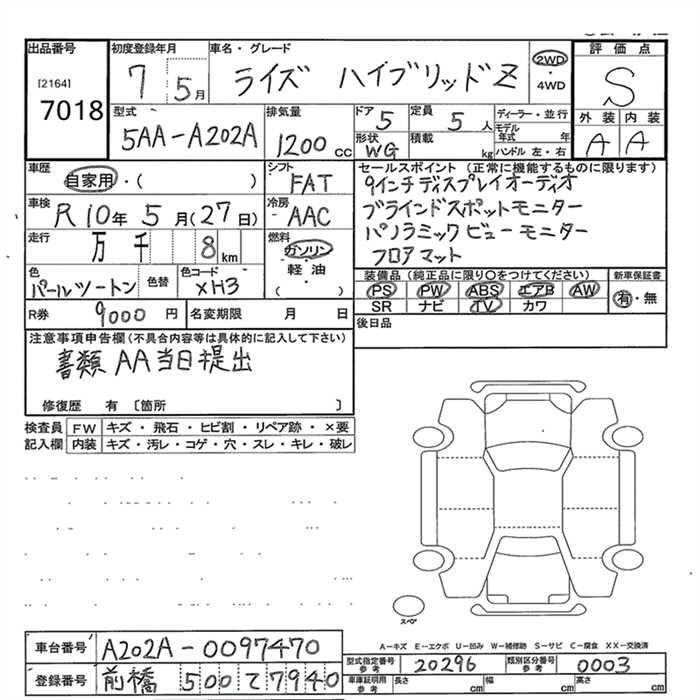 出品番号
[2164]
7018
初度登録年月
7 5月
車名・グレード
ライズ ハイブリッドZ
2WD
・
4WD
評価点
S
外装 内装
A A
型式
5AA-A202A
排気量
1200 cc
ドア
5
定員
5人
形状
WG
積載
kg
ディーラー・並行
モデル年式 年
ハンドル 左・右
車歴
自家用・( )
シフト
FAT
車検
R10年5月(27日)
冷房
AAC
走行
万 千 8 km
燃料
ガソリン
・
軽油
・
( )
色
パールツートン
色替
色コード
XH3
R券 9000円
名変期限 月 日
セールスポイント(正常に機能するものに限ります)
9インチディスプレイオーディオ
ブラインドスポットモニター
パノラミックビューモニター
フロアマット
装備品(純正品に限り○をつけてください)
PS PW ABS エアB AW
SR ナビ TV カワ
新車保証書
有・無
後日品
注意事項申告欄(不具合内容等は具体的に記入して下さい)
書類AA当日提出
修復歴 有 〔箇所 〕
検査員 FW キズ・飛石・ヒビ割・リペア跡・×要
記入欄 内装 キズ・汚レ・コゲ・穴・スレ・キレ・破レ
スペア
A-キズ E-エクボ U-凹み W-補修跡 S-サビ C-腐食 XX-交換済
車台番号 A202A-0097470
登録番号 前橋 500 て 7940
型式指定番号
参考
20296
類別区分番号
参考
0003
車庫証明用
参考
長さ cm 幅 cm 高さ cm